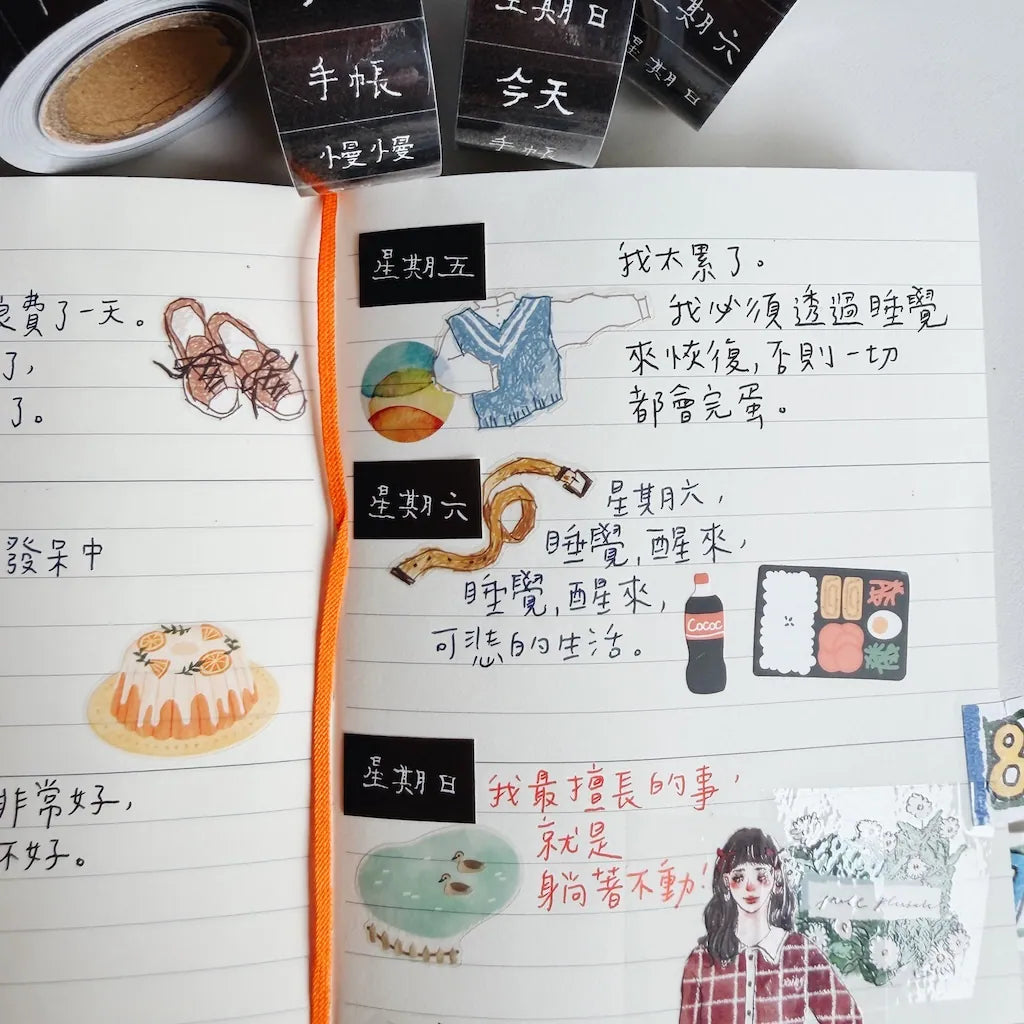 星期日
星期六
手帳
今天
星期日
慢慢
手帳
費了一天。
了,
了。
發呆中
非常好,
不好。
星期五
我太累了。
我必須透過睡覺
來恢復,否則一切
都會完蛋。
星期六
星期六,
睡覺,醒來,
睡覺,醒來,
可悲的生活。
Cococ
星期日
我最擅長的事,
就是
躺著不動!
8